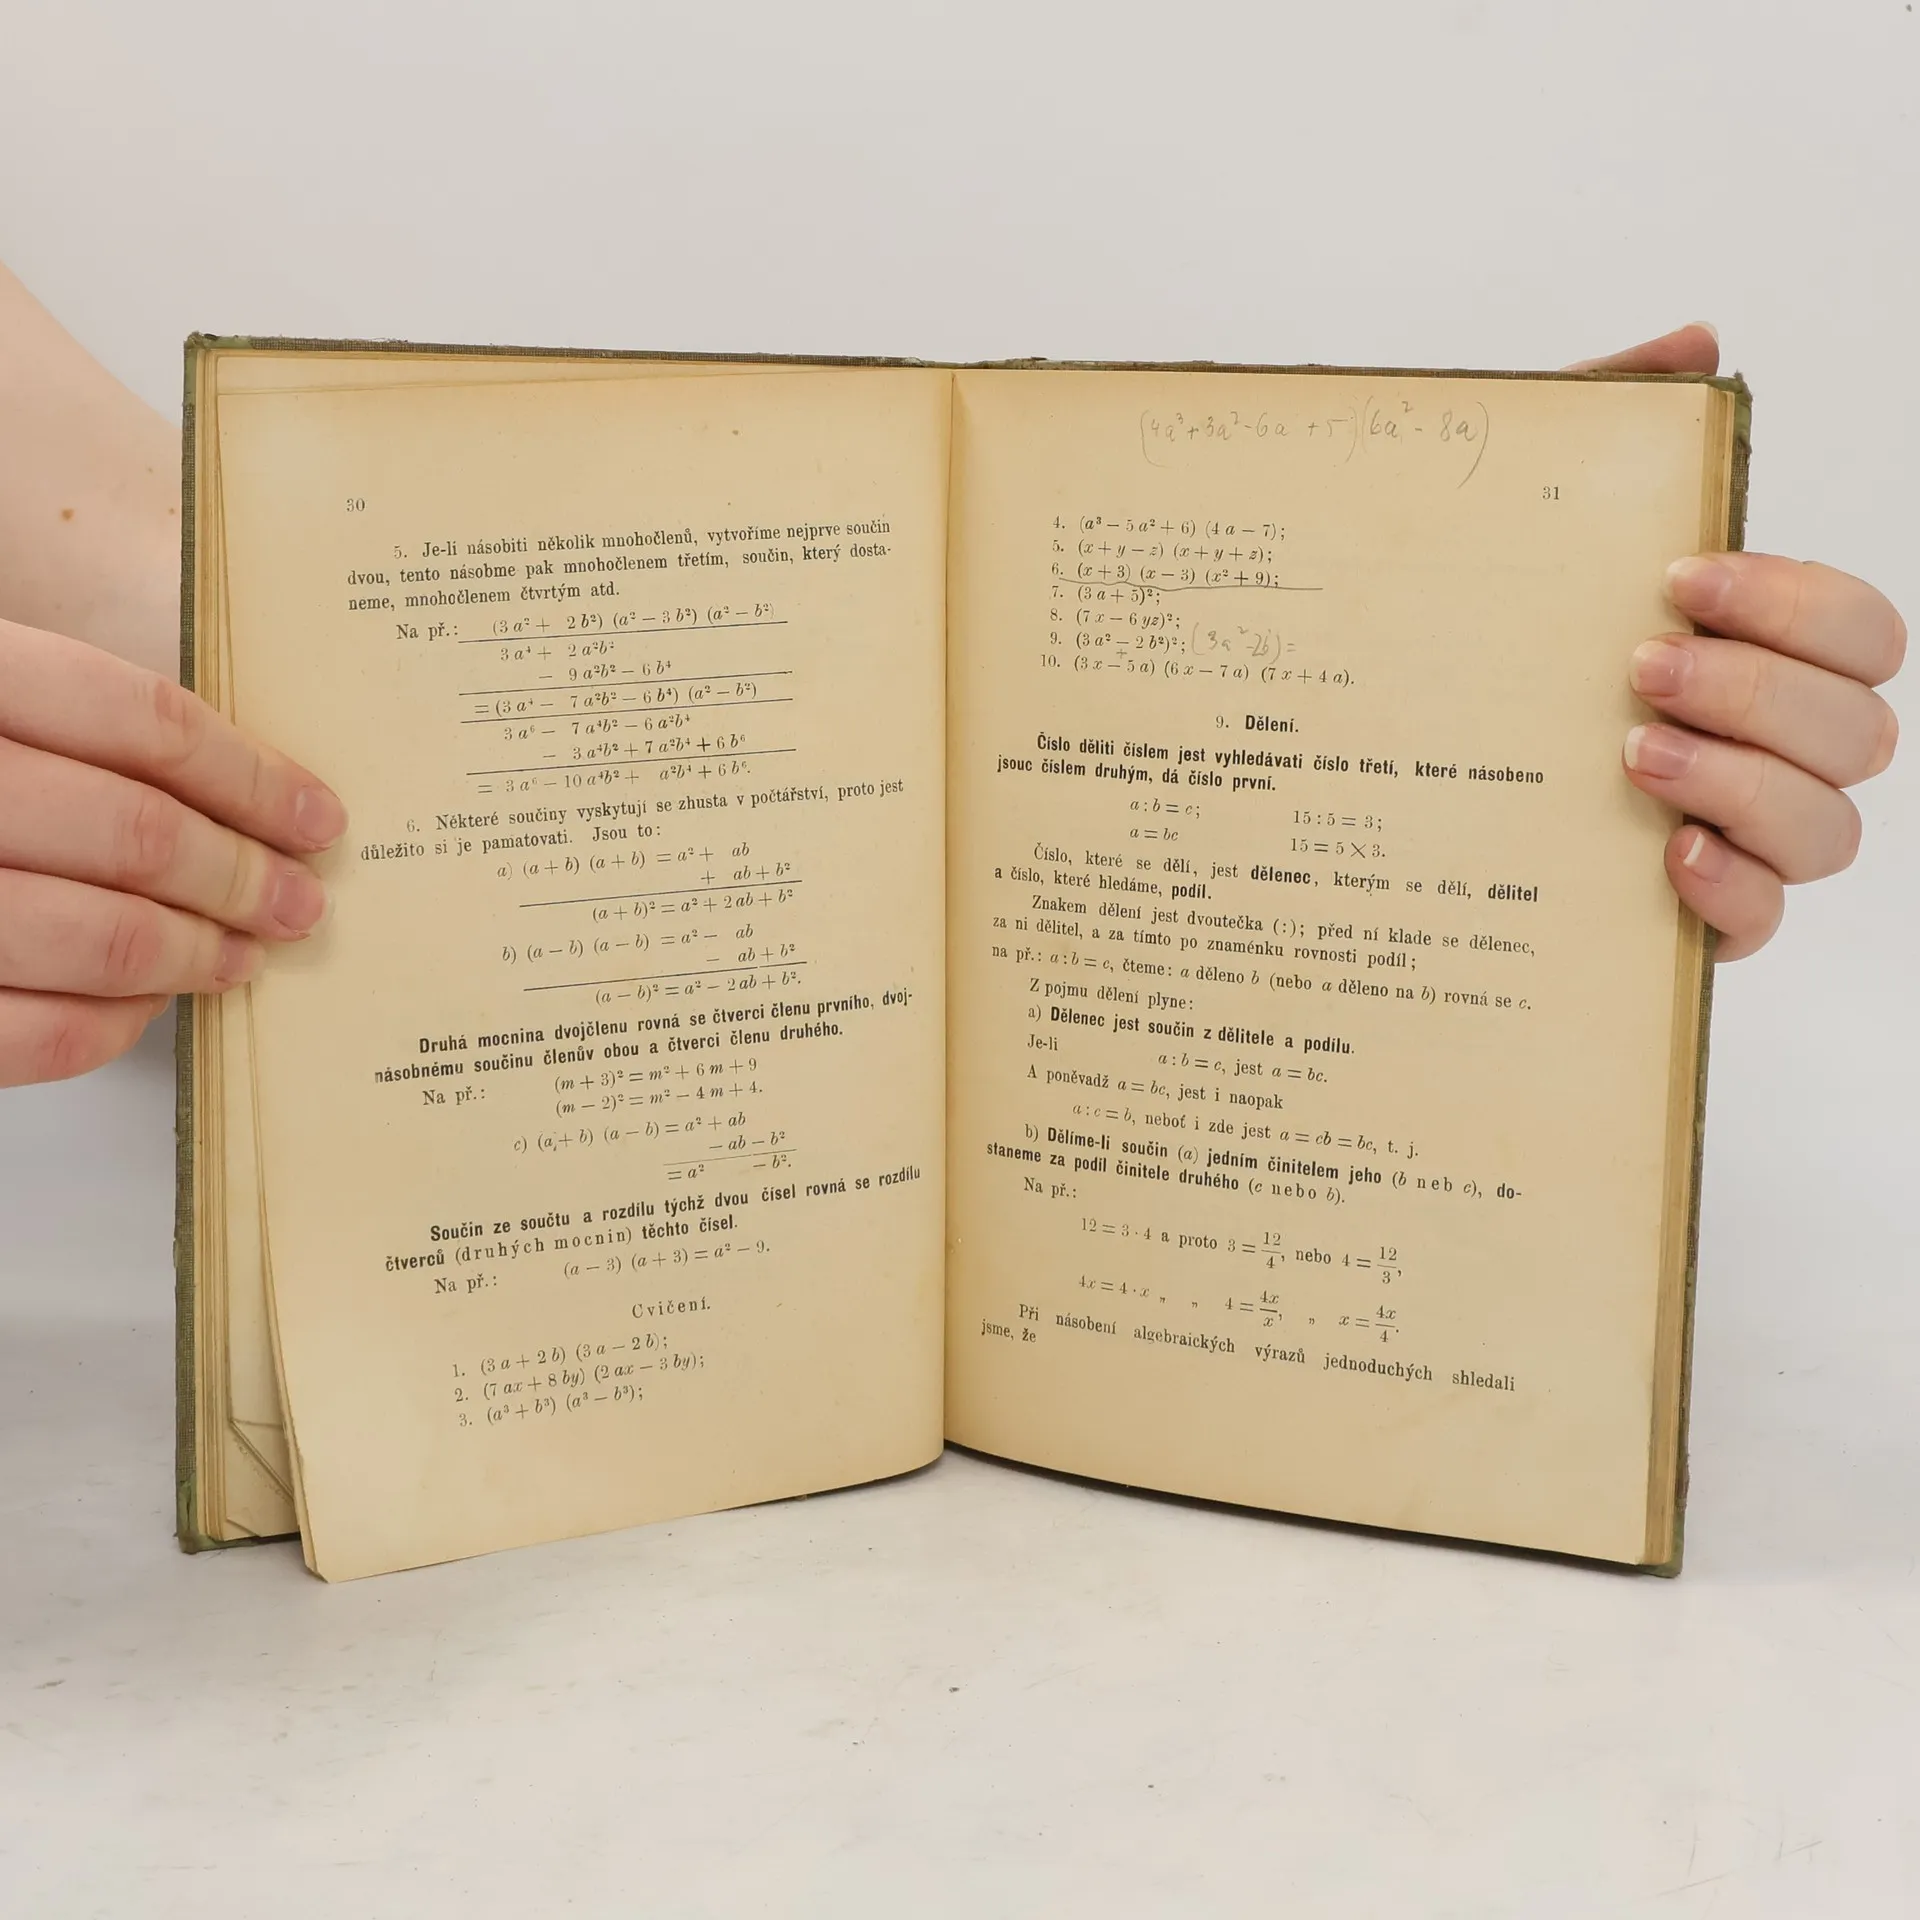 30
5. Je-li násobiti několik mnohočlenů, vytvoříme nejprve součin
dvou, tento násobme pak mnohočlenem třetím, součin, který dosta-
neme, mnohočlenem čtvrtým atd.
Na př.: (3 a² + 2 b²) (a² — 3 b²) (a² — b²)
3 a⁴ + 2 a²b²
— 9 a²b² — 6 b⁴
= (3 a⁴ — 7 a²b² — 6 b⁴) (a² — b²)
3 a⁶ — 7 a⁴b² — 6 a²b⁴
— 3 a⁴b² + 7 a²b⁴ + 6 b⁶
= 3 a⁶ — 10 a⁴b² + a²b⁴ + 6 b⁶.
6. Některé součiny vyskytují se zhusta v počtářství, proto jest
důležito si je pamatovati. Jsou to:
a) (a + b) (a + b) = a² + ab
+ ab + b²
(a + b)² = a² + 2 ab + b²
b) (a — b) (a — b) = a² — ab
— ab + b²
(a — b)² = a² — 2 ab + b².
Druhá mocnina dvojčlenu rovná se čtverci členu prvního, dvoj-
násobnému součinu členův obou a čtverci členu druhého.
Na př.: (m + 3)² = m² + 6 m + 9
(m — 2)² = m² — 4 m + 4.
c) (a + b) (a — b) = a² + ab
— ab — b²
= a² — b².
Součin ze součtu a rozdílu týchž dvou čísel rovná se rozdílu
čtverců (druhých mocnin) těchto čísel.
Na př.: (a — 3) (a + 3) = a² — 9.
Cvičení.
1. (3 a + 2 b) (3 a — 2 b);
2. (7 ax + 8 by) (2 ax — 3 by);
3. (a³ + b³) (a³ — b³);
(4a³+3a²-6a +5)(6a² - 8a)
31
4. (a³ — 5 a² + 6) (4 a — 7);
5. (x + y — z) (x + y + z);
6. (x + 3) (x — 3) (x² + 9);
7. (3 a + 5)²;
8. (7 x — 6 yz)²;
9. (3 a² — 2 b²)²; (3a² -2b) =
+
10. (3 x — 5 a) (6 x — 7 a) (7 x + 4 a).
9. Dělení.
Číslo děliti číslem jest vyhledávati číslo třetí, které násobeno
jsouc číslem druhým, dá číslo první.
a : b = c; 15 : 5 = 3;
a = bc 15 = 5 × 3.
Číslo, které se dělí, jest dělenec, kterým se dělí, dělitel
a číslo, které hledáme, podíl.
Znakem dělení jest dvoutečka (:); před ní klade se dělenec,
za ni dělitel, a za tímto po znaménku rovnosti podíl;
na př.: a : b = c, čteme: a děleno b (nebo a děleno na b) rovná se c.
Z pojmu dělení plyne:
a) Dělenec jest součin z dělitele a podílu.
Je-li a : b = c, jest a = bc.
A poněvadž a = bc, jest i naopak
a : c = b, neboť i zde jest a = cb = bc, t. j.
b) Dělíme-li součin (a) jedním činitelem jeho (b neb c), do-
staneme za podíl činitele druhého (c nebo b).
Na př.:
12 = 3 · 4 a proto 3 = 12/4, nebo 4 = 12/3,
4x = 4 · x „ „ 4 = 4x/x, „ x = 4x/4.
Při násobení algebraických výrazů jednoduchých shledali
jsme, že